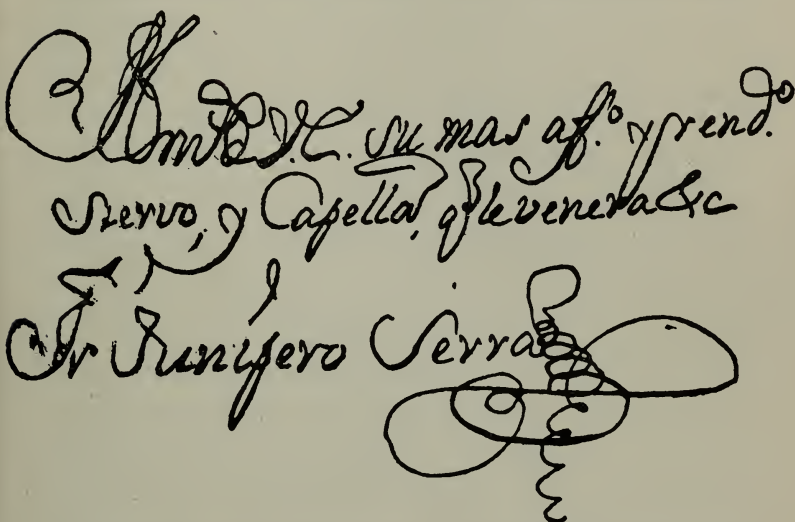 su mas af.º y rend.º
siervo, y Capellan, q le venera &c
Fr Junipero Serra